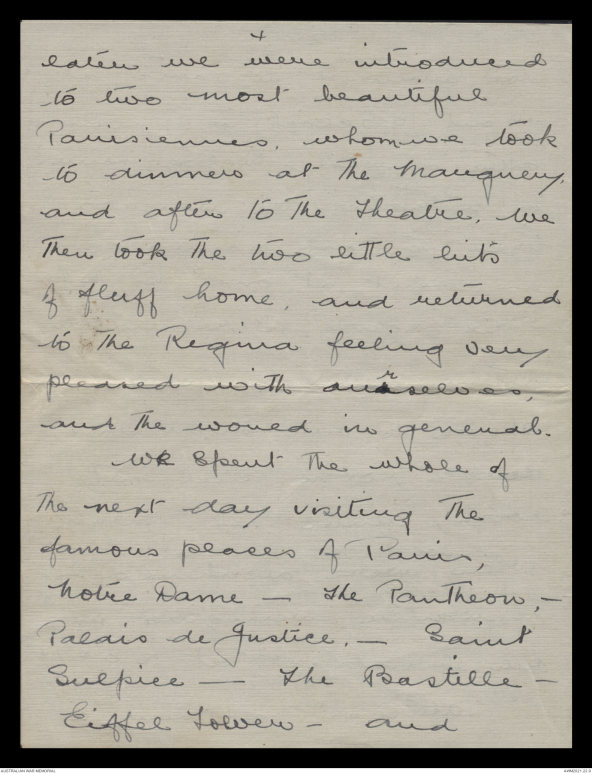 +
later we were introduced
to two most beautiful
Parisiennes, whom we took
to dinner at the Marguery,
and after to The Theatre. We
Then took the two little bits
of fluff home, and returned
to the Regina feeling very
pleased with ourselves,
and the world in general.
We spent the whole of
The next day visiting The
famous places of Paris,
Notre Dame — The Pantheon, —
Palais de Justice. — Saint
Sulpice — The Bastille —
Eiffel Tower — and
AUSTRALIAN WAR MEMORIAL